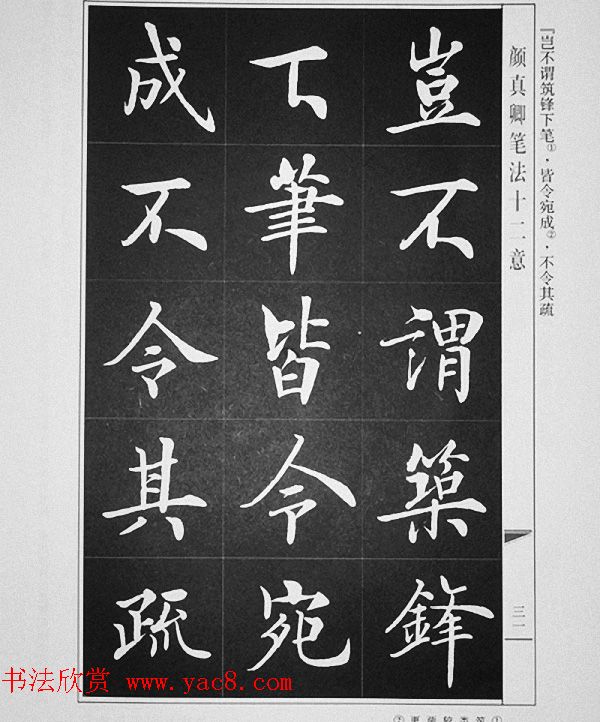 『岂不谓筑锋下笔①·皆令宛成②·不令其疏
颜真卿笔法十二意
豈不謂築鋒
下筆皆令宛
成不令其疏
三一
书法欣赏 www.yac8.com